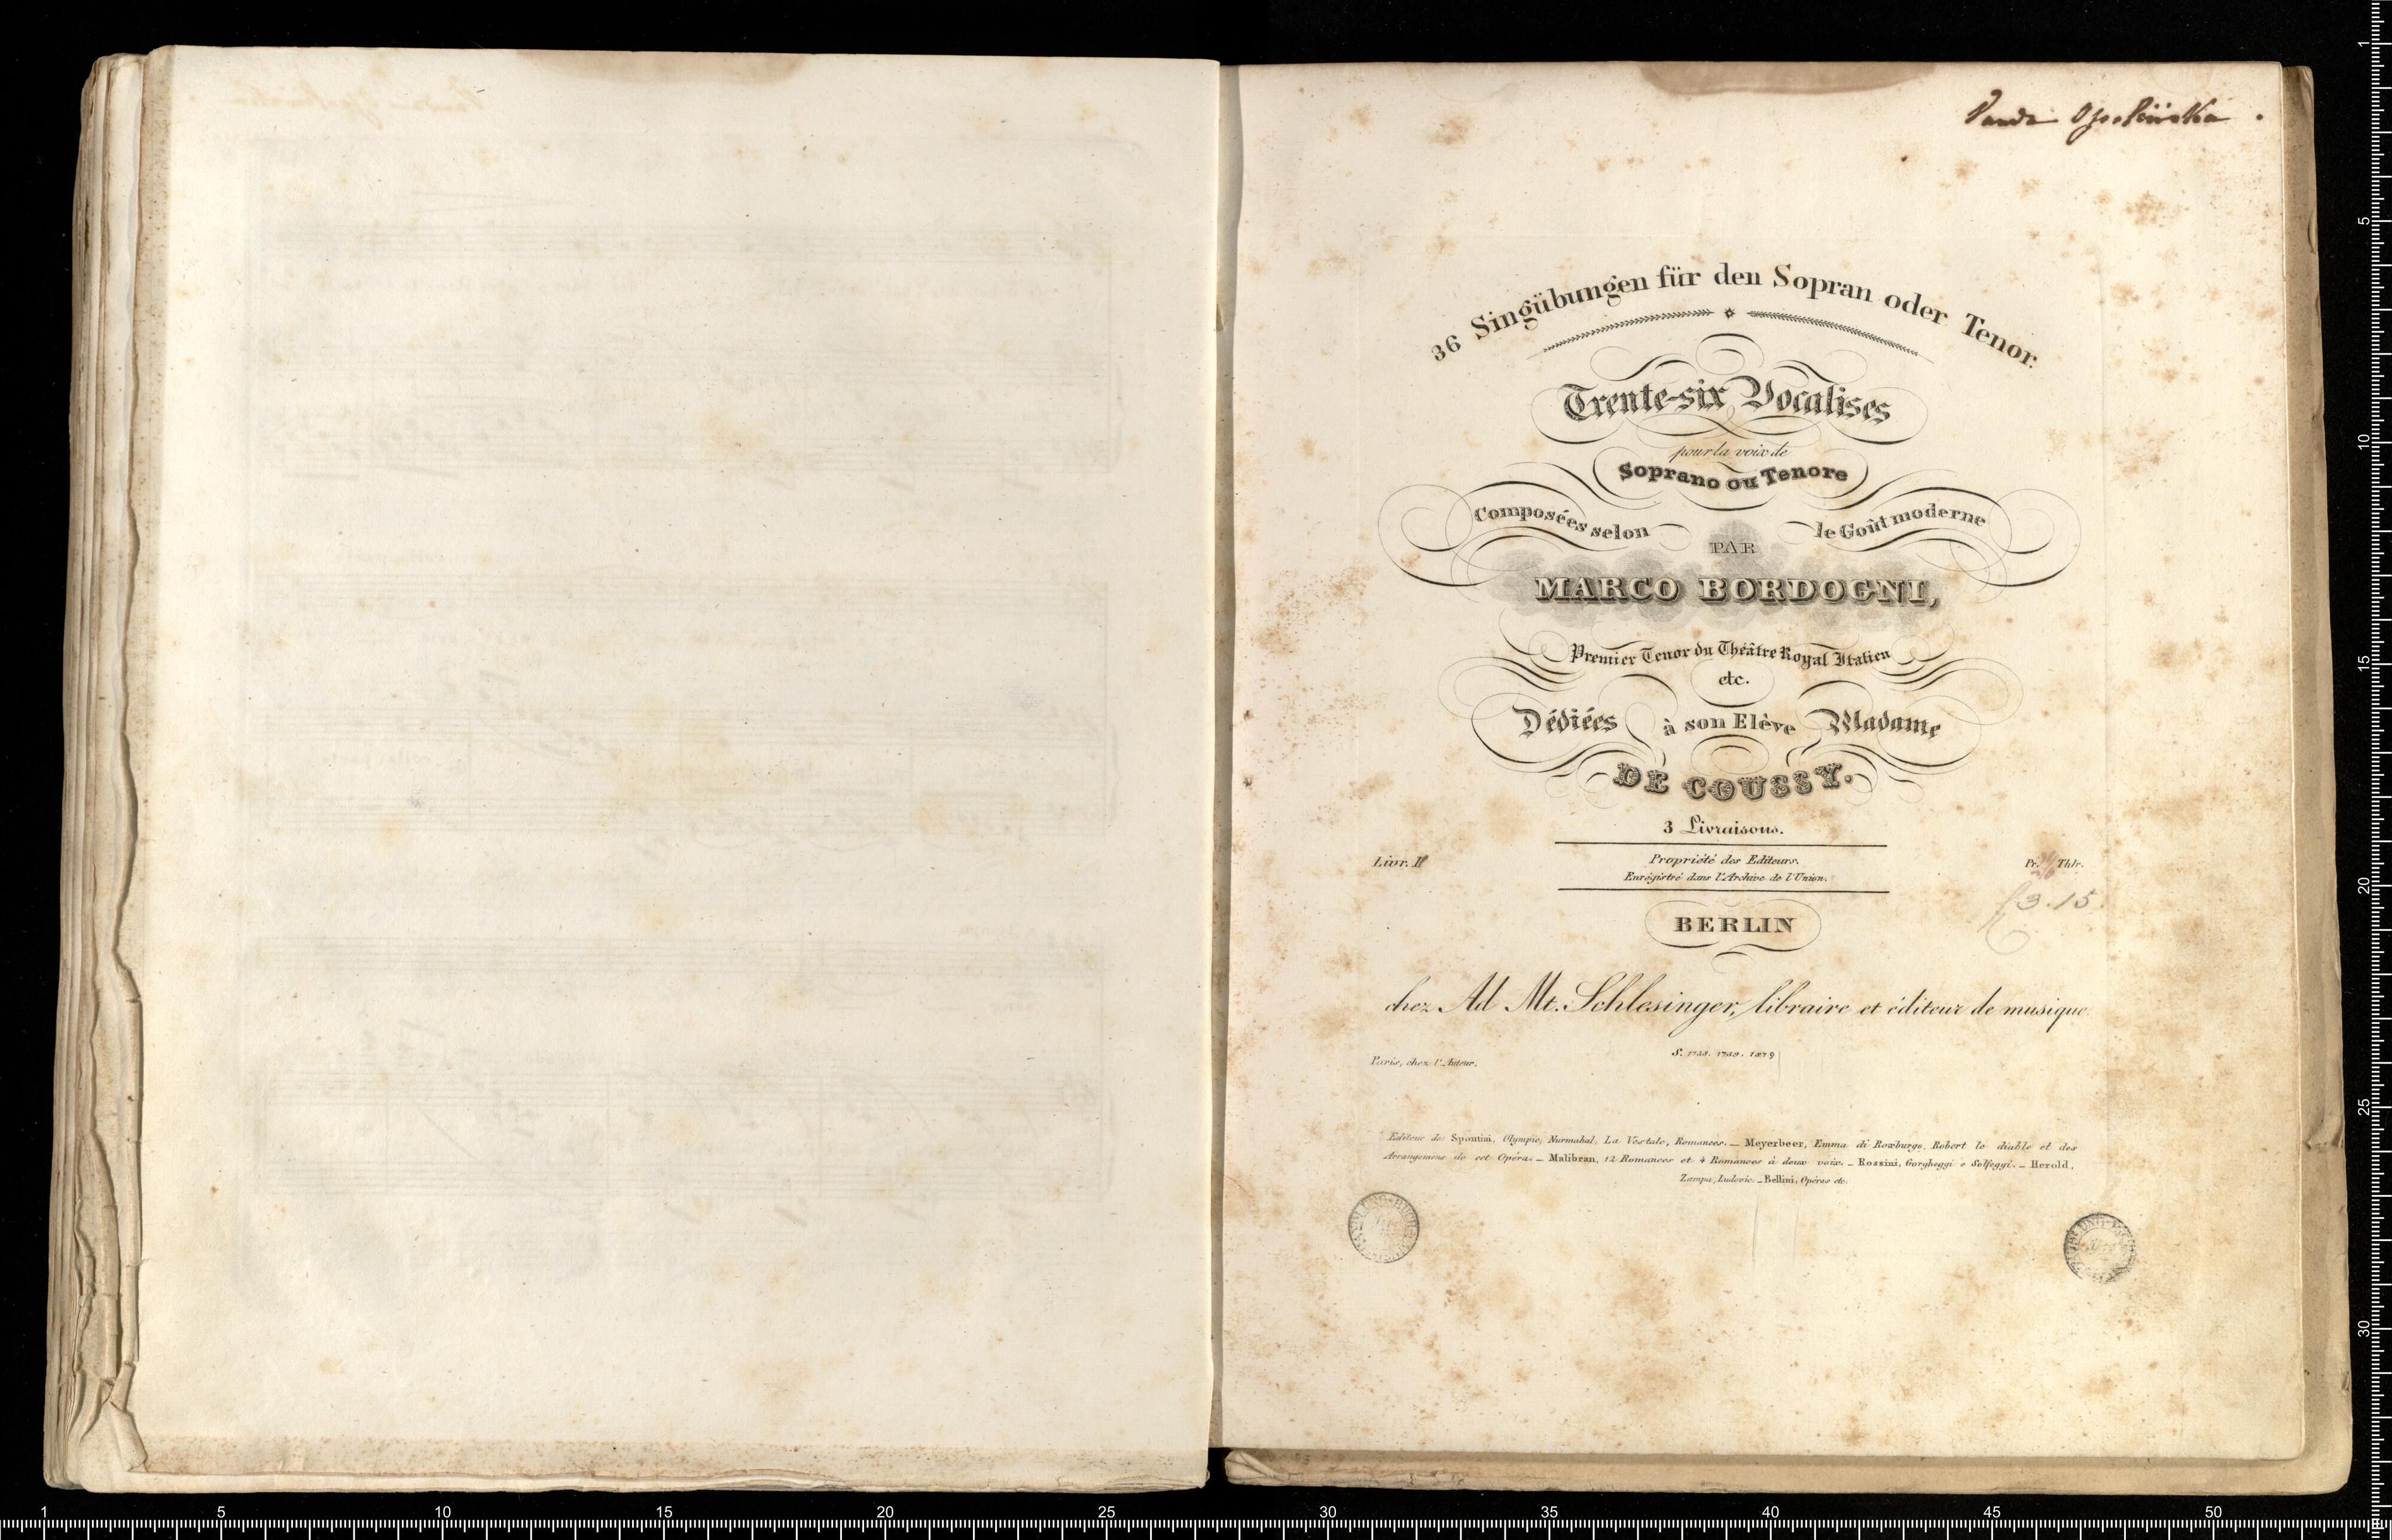 36 Singübungen für den Sopran oder Tenor.
Trente-six Vocalises
pour la voix de
Soprano ou Tenore
Composées selon le Goût moderne
PAR
MARCO BORDOGNI,
Premier Tenor du Théâtre Royal Italien
etc.
Dédiées à son Elève Madame
DE COUSSY.
3 Livraisons.
Livr. II
Propriété des Editeurs.
Enrégistré dans l'Archive de l'Union.
Pr. Thlr.
3.15.
BERLIN
chez Ad Mt. Schlesinger, libraire et éditeur de musique.
Paris, chez l'Auteur.
S. 1738. 1739. 1879
Editeur de: Spontini, Olympie, Nurmahal, La Vestale, Romances. _ Meyerbeer, Emma di Roxburgo, Robert le diable et des
Arrangemens de cet Opéra. _ Malibran, 12 Romances et 4 Romances à deux voix. _ Rossini, Gorgheggi e Solfeggi. _ Herold,
Zampa, Ludovic. _ Bellini, Opéras etc.
1 5 10 15 20 25 30 35 40 45 50
1
5
10
15
20
25
30